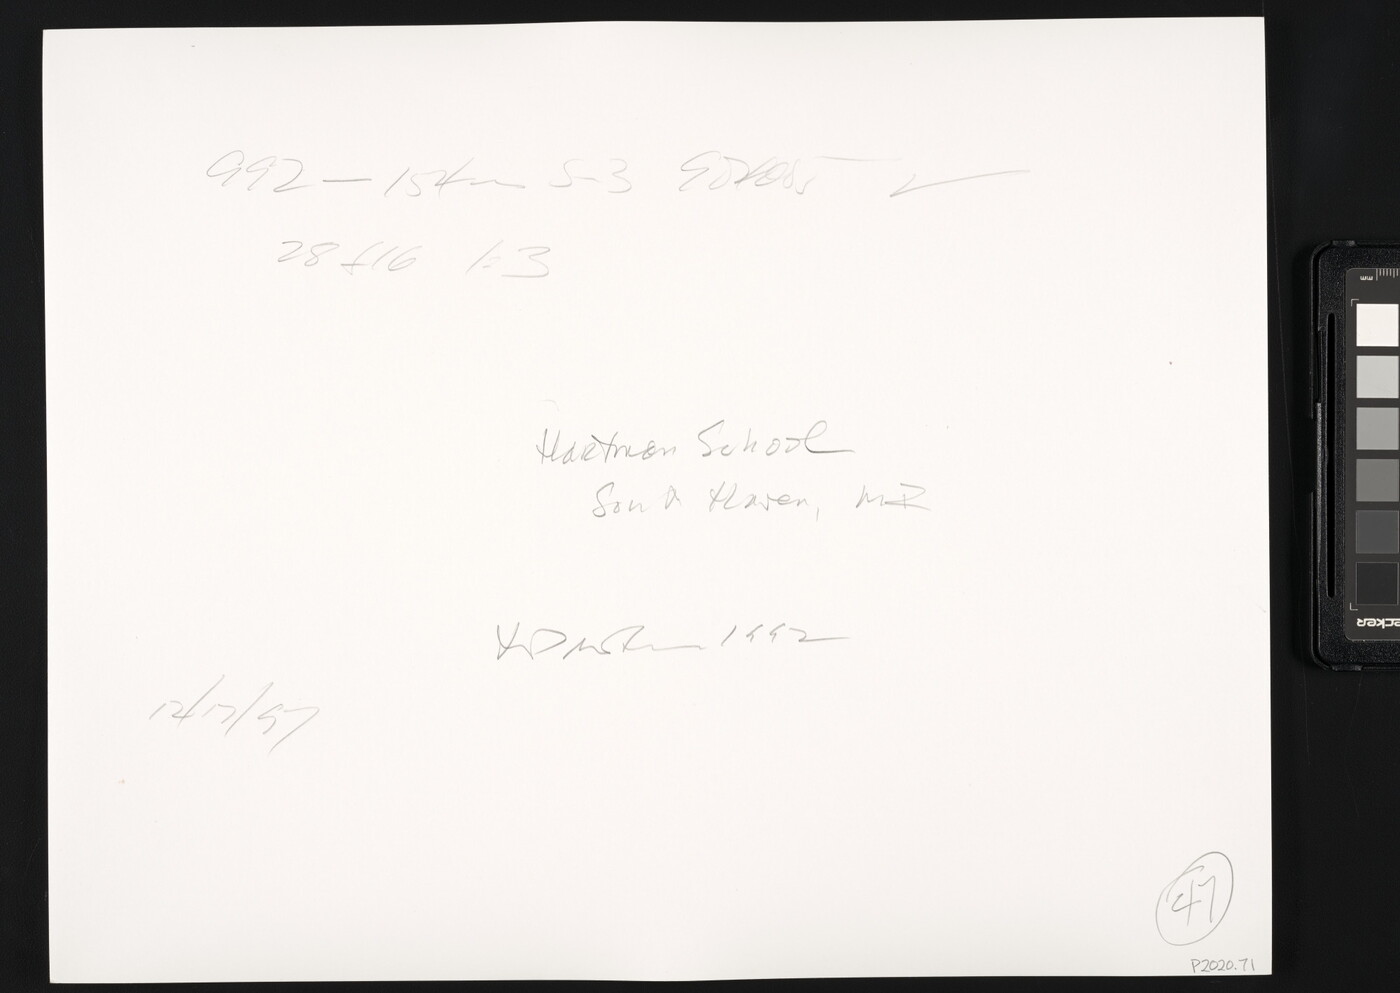 992 — 154 S-3
28 f16 1:3
Hartman School
South Haven, MI
1992
12/17/97
47
P2020.71
mm